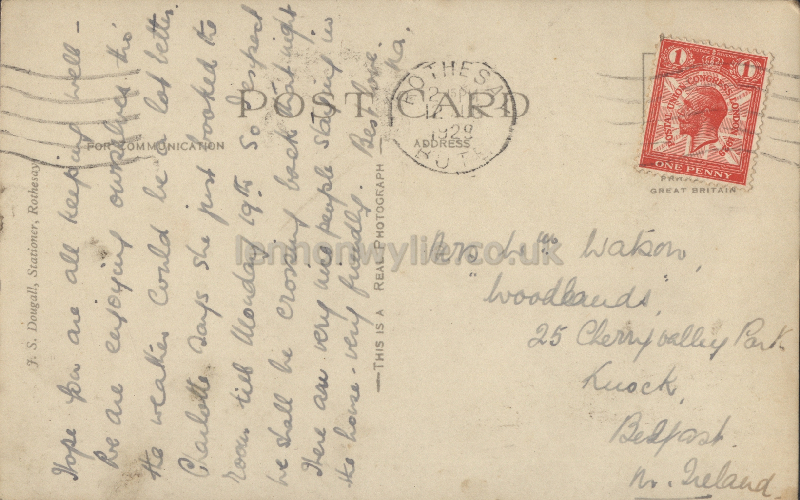 POST CARD
FOR COMMUNICATION
ADDRESS
Hope you are all keeping well -
We are enjoying ourselves tho'
the weather could be a lot better.
Charlotte says she just booked the
room till Monday 19th. So I expect
we shall be crossing back that night
There are very nice people staying in
the house - very friendly. Best love.
Pa.
J. S. Dougall, Stationer, Rothesay
THIS IS A REAL PHOTOGRAPH
ROTHESAY
12
1929
BUTE
1 1
POSTAL UNION CONGRESS LONDON 1929
ONE PENNY
GREAT BRITAIN
Mrs Wm Watson,
"Woodlands",
25 Cherryvalley Park
Knock,
Belfast.
N. Ireland
lennonwylie.co.uk